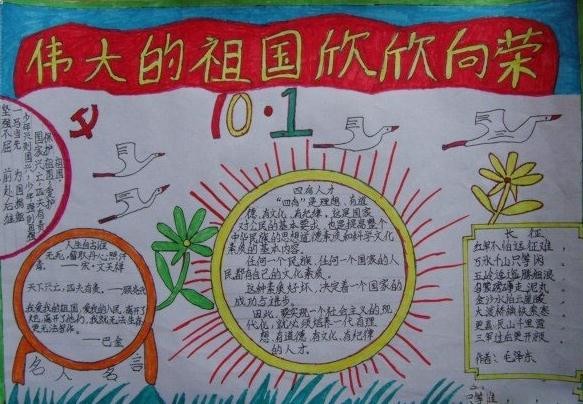 伟大的祖国欣欣向荣
10·1
坚强不屈
前赴后继
一马当先
为国捐躯
国家兴亡，匹夫有责
保护祖国，
四有人才
“四有”是理想、有道
德、有文化、有纪律，这是国家
对公民的基本要求，也是提高整个
中华民族的思想道德素质和科学文化
素质的基本内容
任何一个民族、任何一个国家的人
民都有自己的文化素质。
这种素质好坏，决定着一个国家的
成功与进步。
因此，要实现一个社会主义的现
代化，就必须培养一代有理
想、有道德、有文化、有纪律
的人才。
人生自古谁
无死，留取丹心照汗
青。——宋·文天祥
天下兴亡，匹夫有责。——顾炎武
我爱我的祖国，爱我的人民，离开了
它，离开了他们，我就无法生存，
更无法写作。
——巴金
名人名言
长征
红军不怕远征难，
万水千山只等闲
五岭逶迤腾细浪
乌蒙磅礴走泥丸
金沙水拍云崖暖
大渡桥横铁索寒
更喜岷山千里雪
三军过后尽开颜
作者：毛泽东